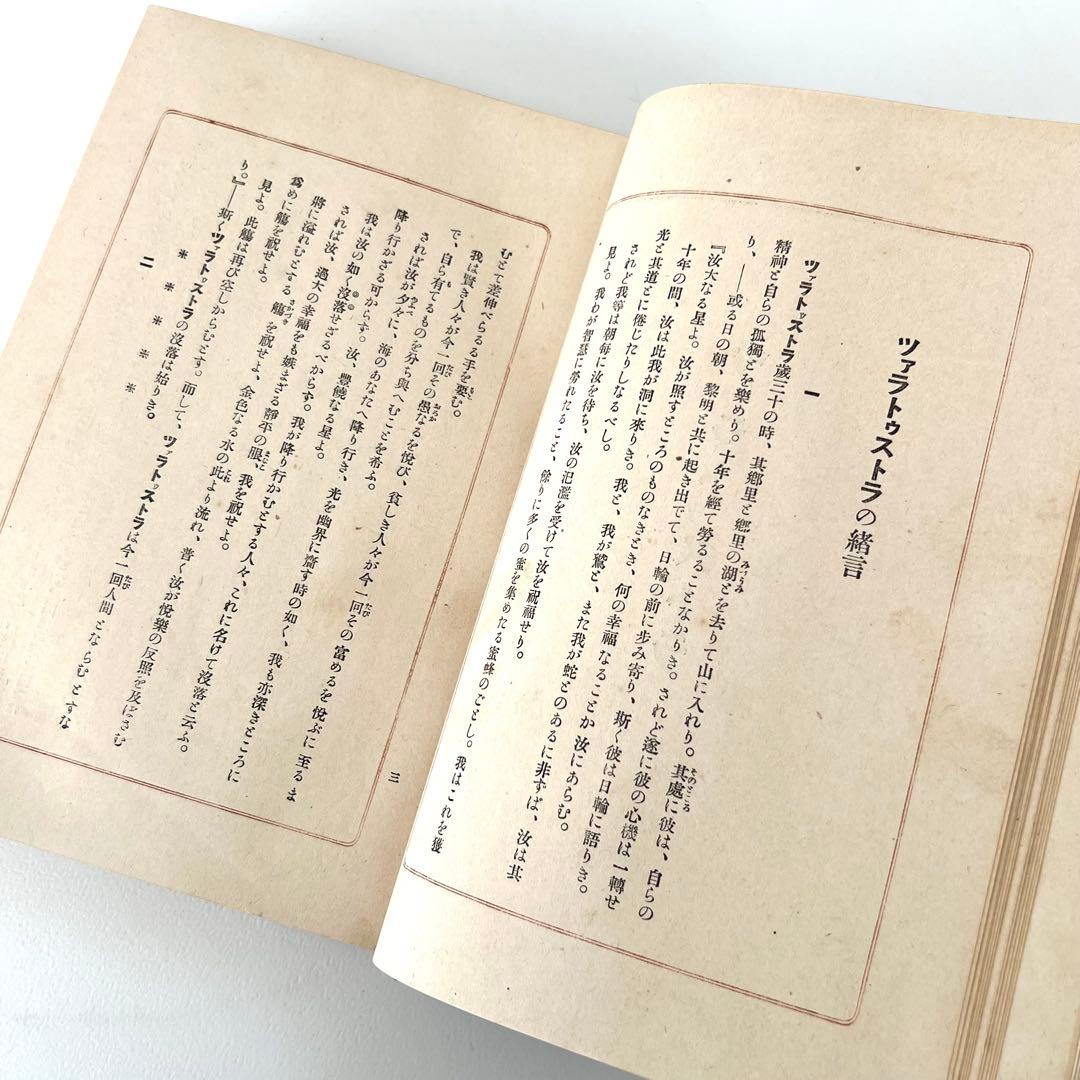 ツァラトゥストラの緒言
一
ツァラトゥストラ歳三十の時、其鄕里と鄕里の湖とを去りて山に入れり。其處に彼は、自らの
精神と自らの孤獨とを樂めり。十年を經て勞るることなかりき。されど遂に彼の心機は一轉せ
り、――或る日の朝、黎明と共に起き出でて、日輪の前に歩み寄り、斯く彼は日輪に語りき。
『汝大なる星よ。汝が照すところのものなきとき、何の幸福なることか汝にあらむ。
十年の間、汝は此我が洞に來りき。我と、我が鷲と、また我が蛇とのあるに非ずば、汝は其
光と其道とに倦じたりしなるべし。
されど我等は朝每に汝を待ち、汝の氾濫を受けて汝を祝福せり。
見よ。我わが智慧に勞れたること、餘りに多くの蜜を集めたる蜜蜂のごとし。我はこれを獲
むとて差伸べらるる手を要む。
我は賢き人々が今一回その愚なるを悅び、貧しき人々が今一回その富めるを悅ぶに至るま
で、自ら有てるものを分ち與へむことを希ふ。
されば汝が夕々に、海のあなたへ降り行き、光を幽界に齎す時の如く、我も亦深きところに
降り行かざる可からず。汝、豐饒なる星よ。
我は汝の如く沒落せざるべからず。我が降り行かむとする人々、これに名けて沒落と云ふ。
されば汝、過大の幸福をも嫉まざる靜平の眼、我を祝せよ。
將に溢れむとする觴を祝せよ、金色なる水の此より流れ、普く汝が悅樂の反照を及ぼさむ
爲めに觴を祝せよ。
見よ。此觴は再び空しからむとす。而して、ツァラトゥストラは今一回人間とならむとすな
り。』――斯くツァラトゥストラの沒落は始りき。
＊ ＊ ＊ ＊ ＊
二
三